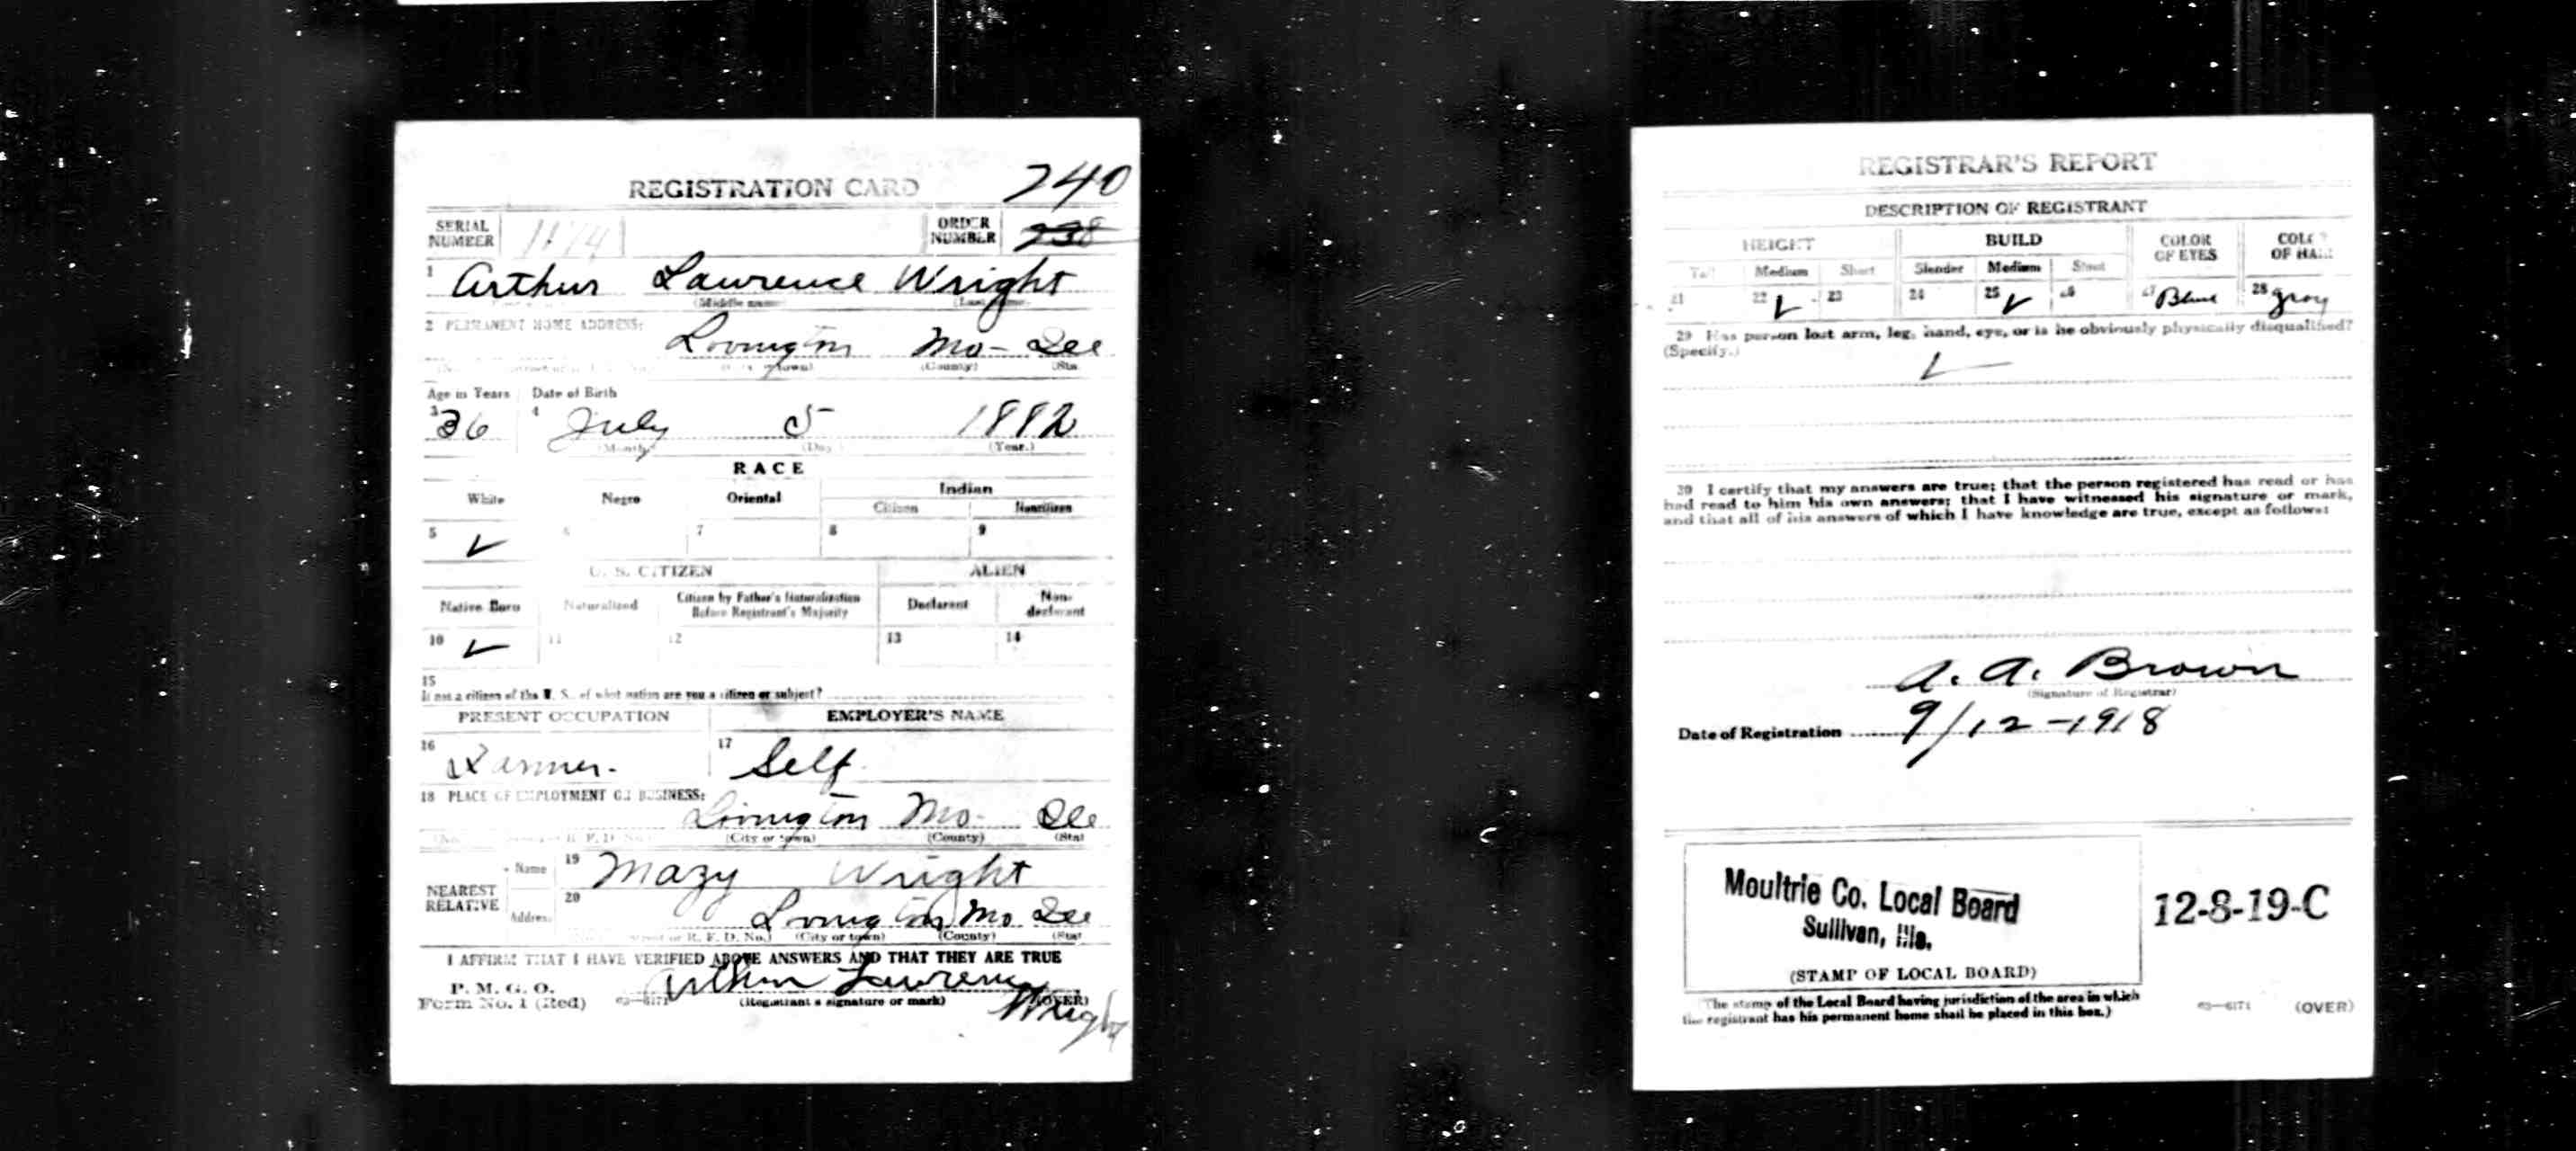 REGISTRATION CARD 240
SERIAL NUMBER 1174 ORDER NUMBER 238
1 Arthur Lawrence Wright
(Middle name) (Last name)
2 PERMANENT HOME ADDRESS:
Lovington Mo- Ill
(City or town) (County) (Sta
Age in Years Date of Birth
3 36 4 July 5 1882
(Month) (Day) (Year.)
RACE
White Negro Oriental Indian
Citizen Noncitizen
5 ✓ 6 7 8 9
U. S. CITIZEN ALIEN
Native Born Naturalized Citizen by Father's Naturalization Before Registrant's Majority Declarant Non-declarant
10 ✓ 11 12 13 14
15
If not a citizen of the U. S., of what nation are you a citizen or subject?
PRESENT OCCUPATION EMPLOYER'S NAME
16 Farmer. 17 Self
18 PLACE OF EMPLOYMENT OR BUSINESS:
Lovington Mo- Ill
R. F. D. No. (City or town) (County) (Stat
NEAREST RELATIVE
Name 19 Mazy Wright
Address 20 Lovington Mo Ill
street or R. F. D. No.) (City or town) (County) (Stat
I AFFIRM THAT I HAVE VERIFIED ABOVE ANSWERS AND THAT THEY ARE TRUE
P. M. G. O.
Form No. 1 (Red) 03—6171 Arthur Lawrence Wright
(Registrant's signature or mark) (OVER)
REGISTRAR'S REPORT
DESCRIPTION OF REGISTRANT
HEIGHT BUILD COLOR OF EYES COLOR OF HAIR
Tall Medium Short Slender Medium Stout
21 22 ✓ 23 24 25 ✓ 26 27 Blue 28 gray
29 Has person lost arm, leg, hand, eye, or is he obviously physically disqualified?
(Specify.)
30 I certify that my answers are true; that the person registered has read or has
had read to him his own answers; that I have witnessed his signature or mark,
and that all of his answers of which I have knowledge are true, except as follows:
A. A. Brown
(Signature of Registrar)
Date of Registration 9/12-1918
Moultrie Co. Local Board
Sullivan, Ills.
(STAMP OF LOCAL BOARD)
12-8-19-C
(The stamp of the Local Board having jurisdiction of the area in which
the registrant has his permanent home shall be placed in this box.)
03—6171 (OVER)